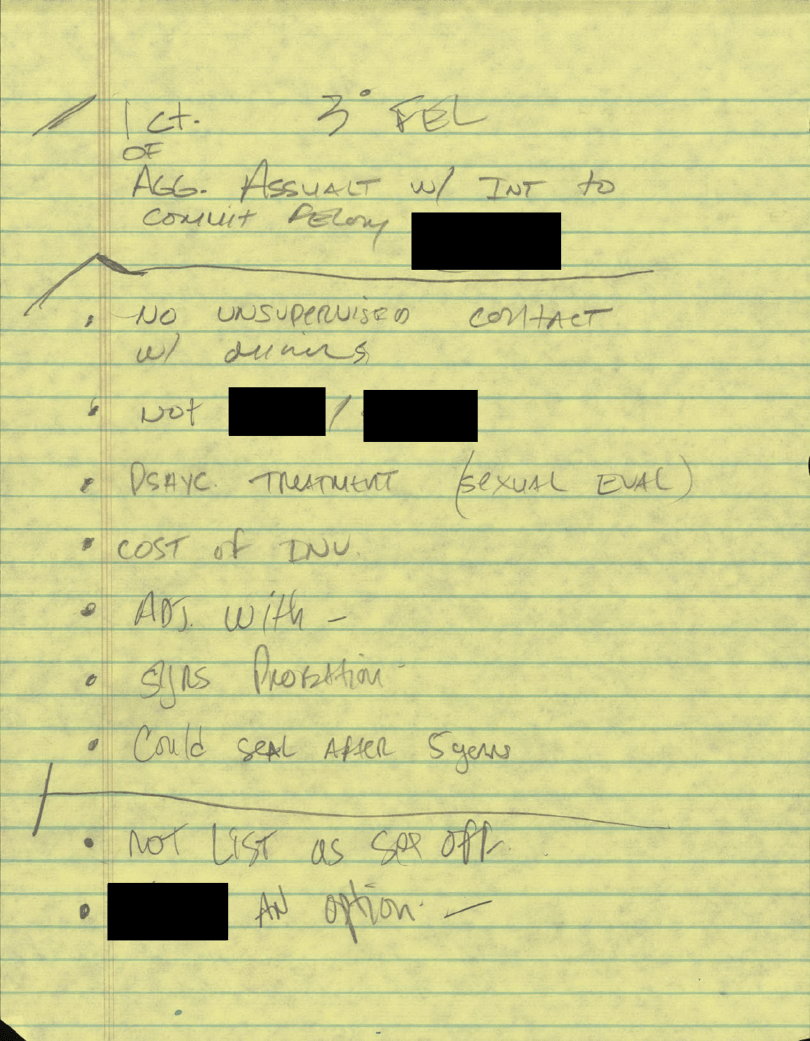 1 ct. 3° FEL
OF
AGG. ASSUALT w/ INT to
commit Felony
• NO UNSUPERVISED CONTACT
w/ minors
• NOT /
• PSAYC. TREATMENT (SEXUAL EVAL)
• COST of INV.
• ADJ. With –
• 5yrs Probation
• Could SEAL AFTER 5 years
• NOT LIST as sex off.
• AN option. –